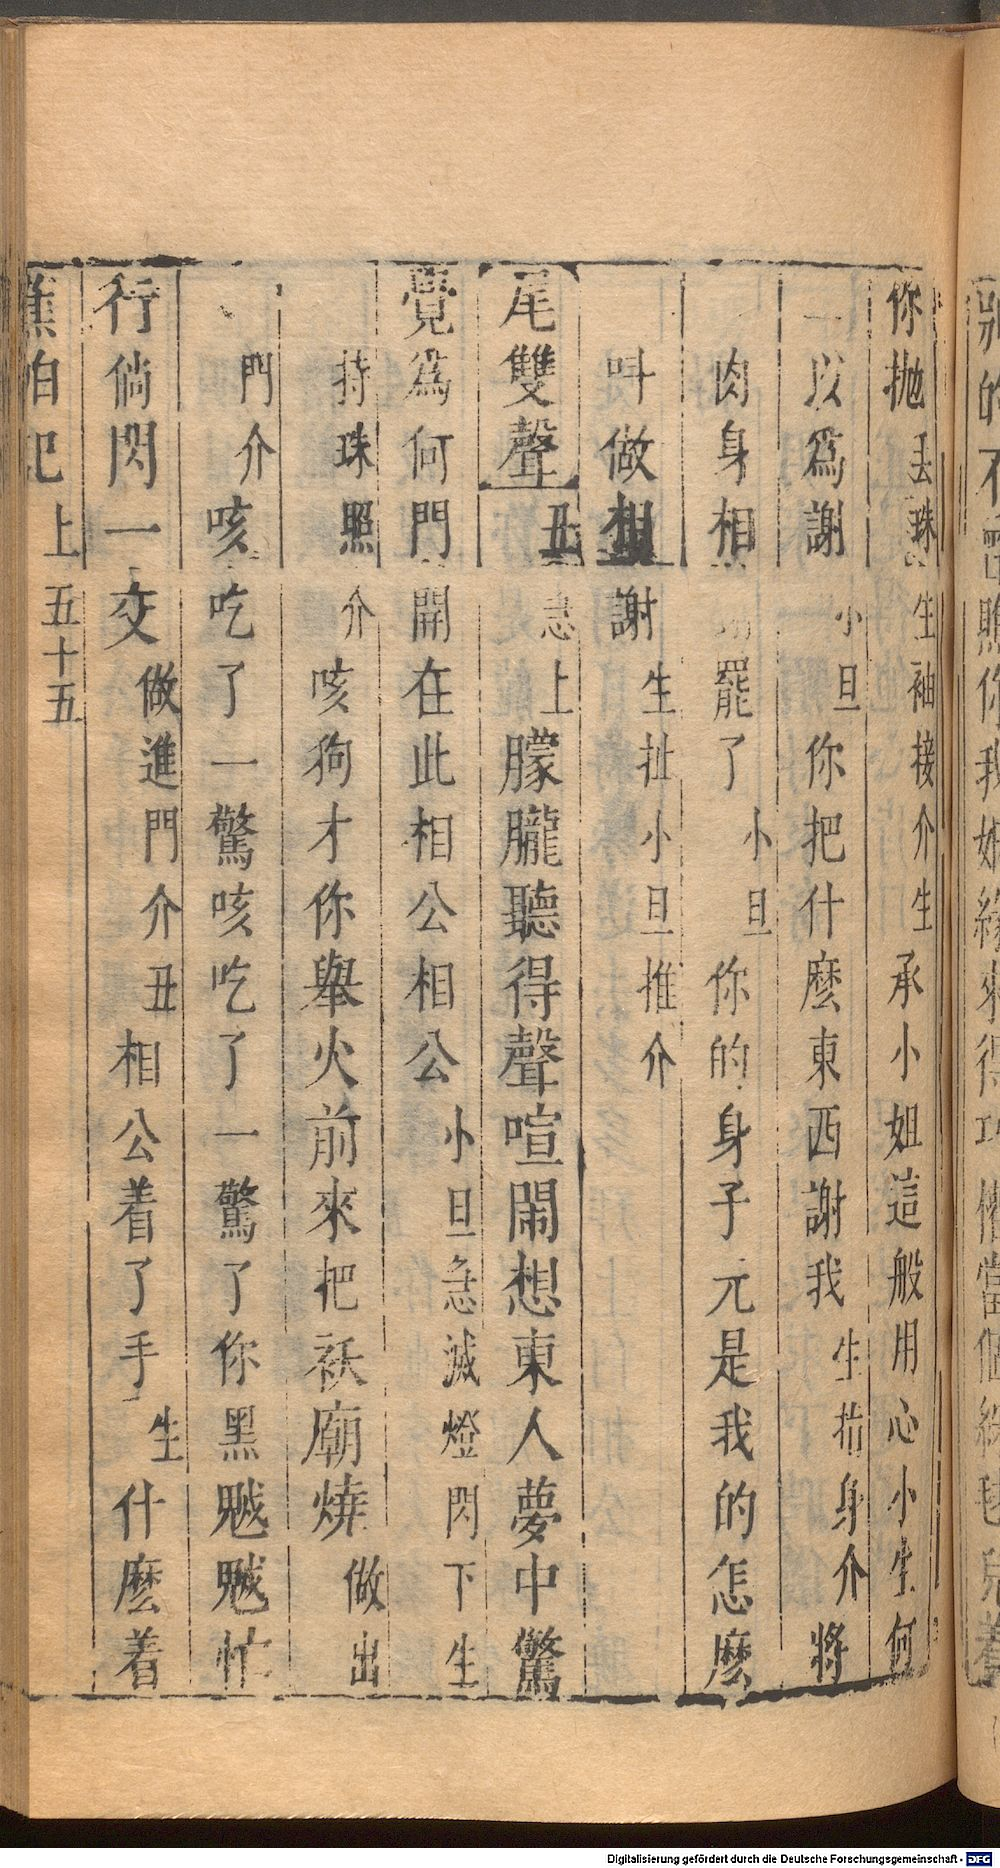 你拋丢珠生袖接介生承小姐這般用心小生何
以爲謝小旦你把什麽東西謝我生指身介將
肉身相謝罷了小旦你的身子元是我的怎麽
叫做相謝生扯小旦推介
尾雙聲丑急上朦朧聽得聲喧鬧想東人夢中驚
覺爲何門開在此相公相公小旦急滅燈閃下生
持珠照介咳狗才你舉火前來把祅廟燒做出
門介咳吃了一驚咳吃了一驚了你黑魆魆忙
行倘閃一交做進門介丑相公着了手生什麽着
蕉帕記上五十五
別的不
賍你我姻緣來得巧
當個
Digitalisierung gefördert durch die Deutsche Forschungsgemeinschaft - DFG